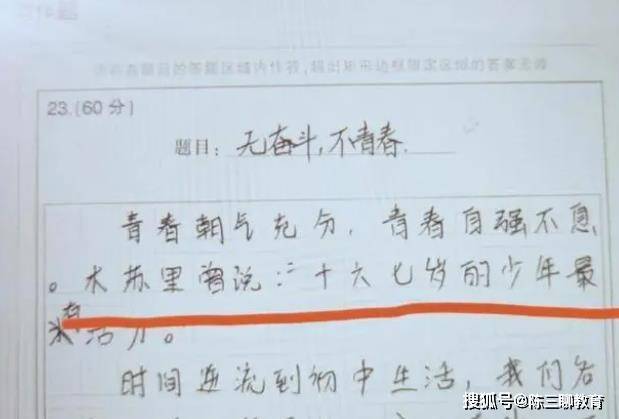 请在各题目的答题区域内作答，超出矩形边框限定区域的答案无效
23.(60分)
题目：无奋斗，不青春.
青春朝气充分，青春自强不息
。木苏里曾说：二十六七岁的少年最
有活力。
时间逆流到初中生活，我们各
搜狐号@陈三聊教育